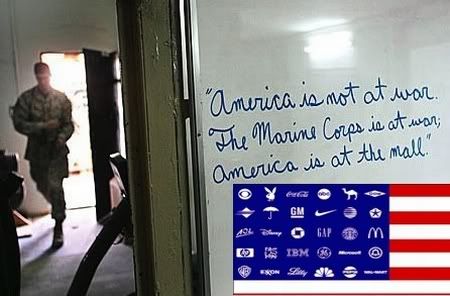 "America is not at war.
The Marine Corps is at war;
America is at the mall."
Coca-Cola abc
GM
AOL Disney GAP
hp IBM Microsoft
WB EXXON Lilly WAL-MART